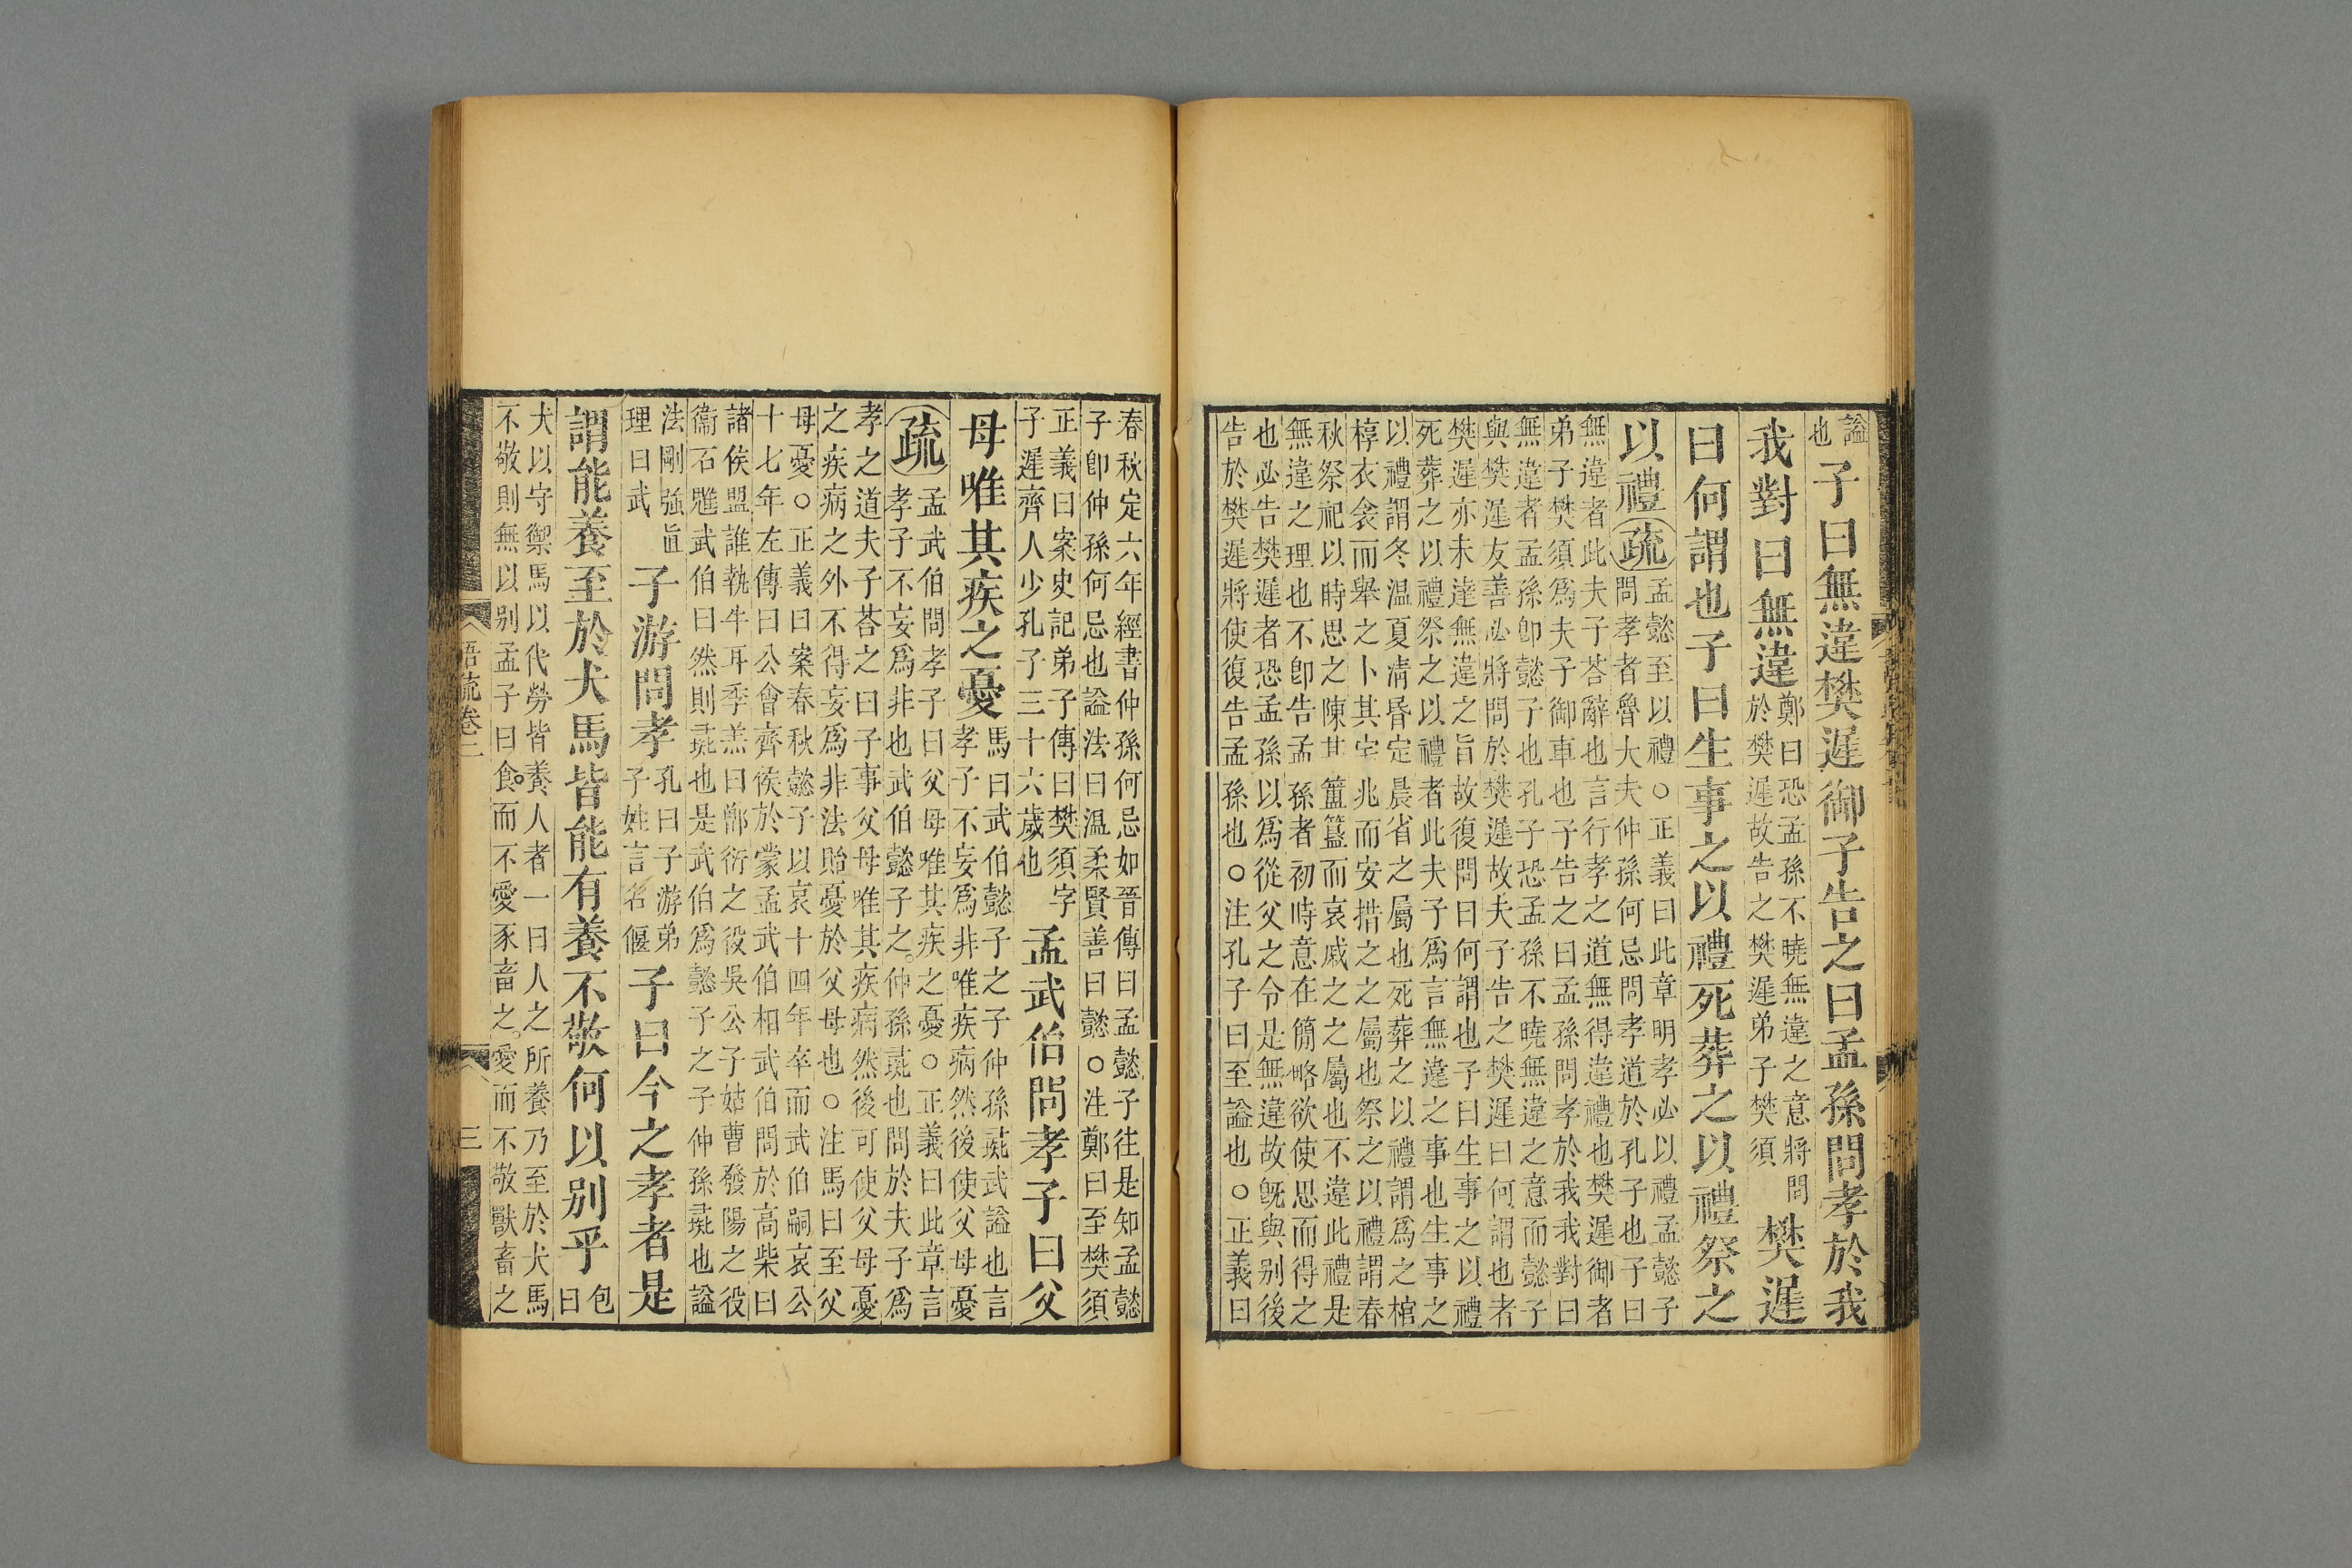 謚
也
子曰無違樊遲御子告之曰孟孫問孝於我
我對曰無違
鄭曰恐孟孫不曉無違之意將問
於樊遲故告之樊遲弟子樊須
樊遲
曰何謂也子曰生事之以禮死葬之以禮祭之
以禮疏
孟懿至以禮○正義曰此章明孝必以禮孟懿子
問孝者魯大夫仲孫何忌問孝道於孔子也子曰
無違者此夫子荅辭也言行孝之道無得違禮也樊遲御者
弟子樊須爲夫子御車也子告之曰孟孫問孝於我我對曰
無違者孟孫卽懿子也孔子恐孟孫不曉無違之意而懿子
與樊遲友善必將問於樊遲故夫子告之樊遲曰何謂也者
樊遲亦未達無違之旨故復問曰何謂也子曰生事之以禮
死葬之以禮祭之以禮者此夫子爲言無違之事也生事之
以禮謂冬温夏凊昏定晨省之屬也死葬之以禮謂爲之棺
椁衣衾而舉之卜其宅兆而安措之之屬也祭之以禮謂春
秋祭祀以時思之陳其簠簋而哀戚之之屬也不違此禮是
無違之理也不卽告孟孫者初時意在簡略欲使思而得之
也必告樊遲者恐孟孫以爲從父之令是無違故旣與别後
告於樊遲將使復告孟孫也○注孔子曰至謚也○正義曰
春秋定六年經書仲孫何忌如晉傳曰孟懿子往是知孟懿
子卽仲孫何忌也謚法曰温柔賢善曰懿○注鄭曰至樊須
正義曰案史記弟子傳曰樊須字
子遲齊人少孔子三十六歲也
孟武伯問孝子曰父
母唯其疾之憂
馬曰武伯懿子之子仲孫彘武謚也言
孝子不妄爲非唯疾病然後使父母憂
疏
孟武伯問孝子曰父母唯其疾之憂○正義曰此章言
孝子不妄爲非也武伯懿子之仲孫彘也問於夫子爲
孝之道夫子荅之曰子事父母唯其疾病然後可使父母憂
之疾病之外不得妄爲非法貽憂於父母也○注馬曰至父
母憂○正義曰案春秋懿子以哀十四年卒而武伯嗣哀公
十七年左傳曰公會齊侯於蒙孟武伯相武伯問於高柴曰
諸侯盟誰執牛耳季羔曰鄫衍之役吳公子姑曹發陽之役
衞石魋武伯曰然則彘也是武伯爲懿子之子仲孫彘也謚
法剛強直
理曰武
子游問孝
孔曰子游弟
子姓言名偃
子曰今之孝者是
謂能養至於犬馬皆能有養不敬何以别乎
包
曰
犬以守禦馬以代勞皆養人者一曰人之所養乃至於犬馬
不敬則無以别孟子曰食而不愛豕畜之愛而不敬獸畜之
語疏卷二
三